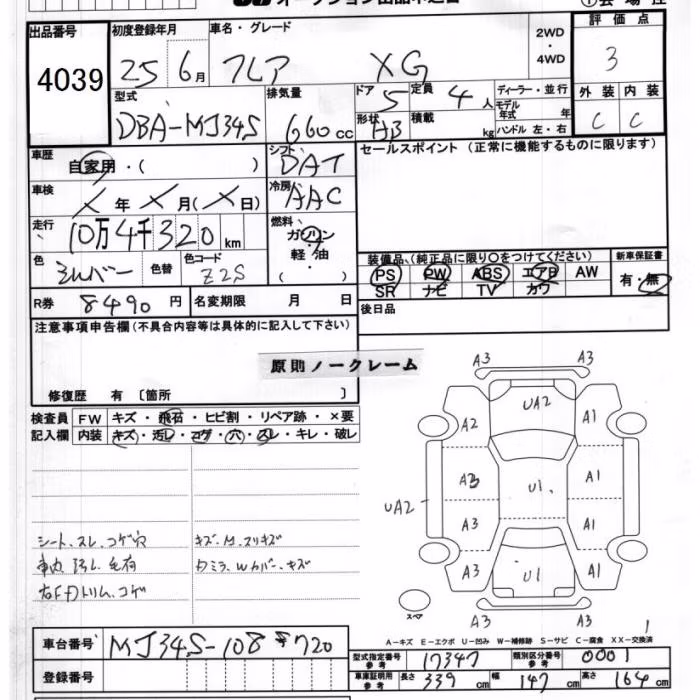 出品番号
4039
初度登録年月
25 6月
車名・グレード
フレア XG
2WD
・
4WD
評価点
3
型式
DBA-MJ34S
排気量
660cc
ドア 5
定員 4人
形状 HB
積載 kg
ディーラー・並行
モデル年式 年
ハンドル 左・右
外装 内装
C C
車歴
自家用・( )
シフト DAT
セールスポイント (正常に機能するものに限ります)
車検
X年X月(X日)
冷房 AAC
走行
10万4千320km
燃料
ガソリン
軽・油
( )
色
シルバー
色替
色コード
Z2S
装備品、(純正品に限り○をつけてください)
PS PW ABS エアB AW
SR ナビ TV カワ
新車保証書
有・無
R券 8490円
名変期限 月 日
後日品
注意事項申告欄(不具合内容等は具体的に記入して下さい)
原則ノークレーム
修復歴 有 〔箇所 〕
検査員
記入欄
FW キズ・飛石・ヒビ割・リペア跡・×要
内装 キズ・汚レ・コゲ・穴・スレ・キレ・破レ
シート、スレ、コゲ穴
車内、汚レ、毛有
右Fドトリム、コゲ
キズ、M、スリキズ
Dミラ、Wカバー、キズ
A3 A3
UA2
A2 A1
A3 U1 A1
UA2
A3 A1
A3 U1 A1
A3 A3
スペア
1
A-キズ E-エクボ U-凹み W-補修跡 S-サビ C-腐食 XX-交換済
車台番号 MJ34S-108720
登録番号
型式指定番号 参考 17347
類別区分番号 参考 0001
車庫証明用 参考 長さ 339cm 幅 147cm 高さ 164cm